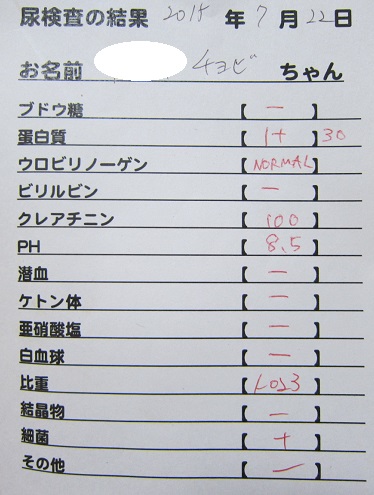 尿検査の結果 2015 年 7 月 22 日
お名前 チョビ ちゃん
ブドウ糖 【 － 】
蛋白質 【 1+ 】 30
ウロビリノーゲン 【 NORMAL 】
ビリルビン 【 － 】
クレアチニン 【 100 】
PH 【 8.5 】
潜血 【 － 】
ケトン体 【 － 】
亜硝酸塩 【 － 】
白血球 【 － 】
比重 【 1.023 】
結晶物 【 － 】
細菌 【 + 】
その他 【 － 】